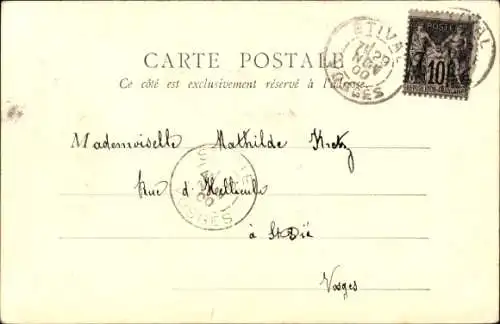 CARTE POSTALE
Ce côté est exclusivement réservé à l'adresse
ETIVAL
29
NOV
00
VOSGES
POSTE
10
REPUBLIQUE FRANÇAISE
Mademoiselle Mathilde
Rue d'Hellieule
à St Dié
VOSGES
Vosges